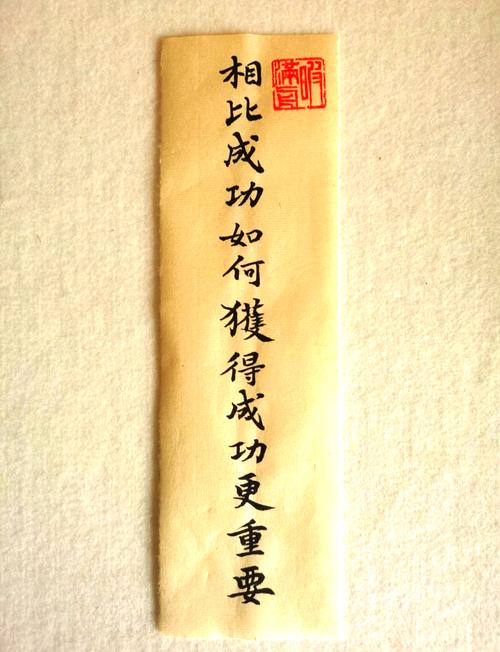 相比成功如何獲得成功更重要